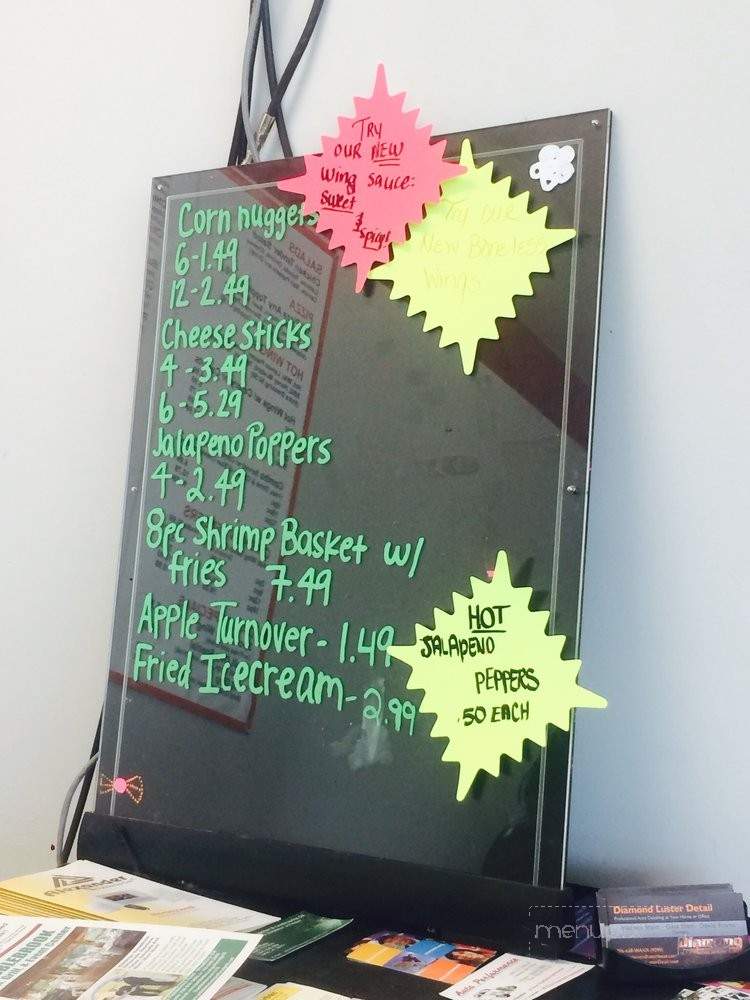 TRY
OUR NEW
Wing sauce:
Sweet
&
Spicy!
Try our
New Boneless
Wings
Corn nuggets
6-1.49
12-2.49
Cheese sticks
4-3.49
6-5.29
Jalapeno Poppers
4-2.49
8pc Shrimp Basket w/
fries 7.49
Apple Turnover-1.49
Fried Icecream-2.99
HOT
JALAPENO
PEPPERS
.50 EACH
SALADS
PIZZA
HOT WINGS
Alexander
Diamond Luster Detail
Auto Performance
menu